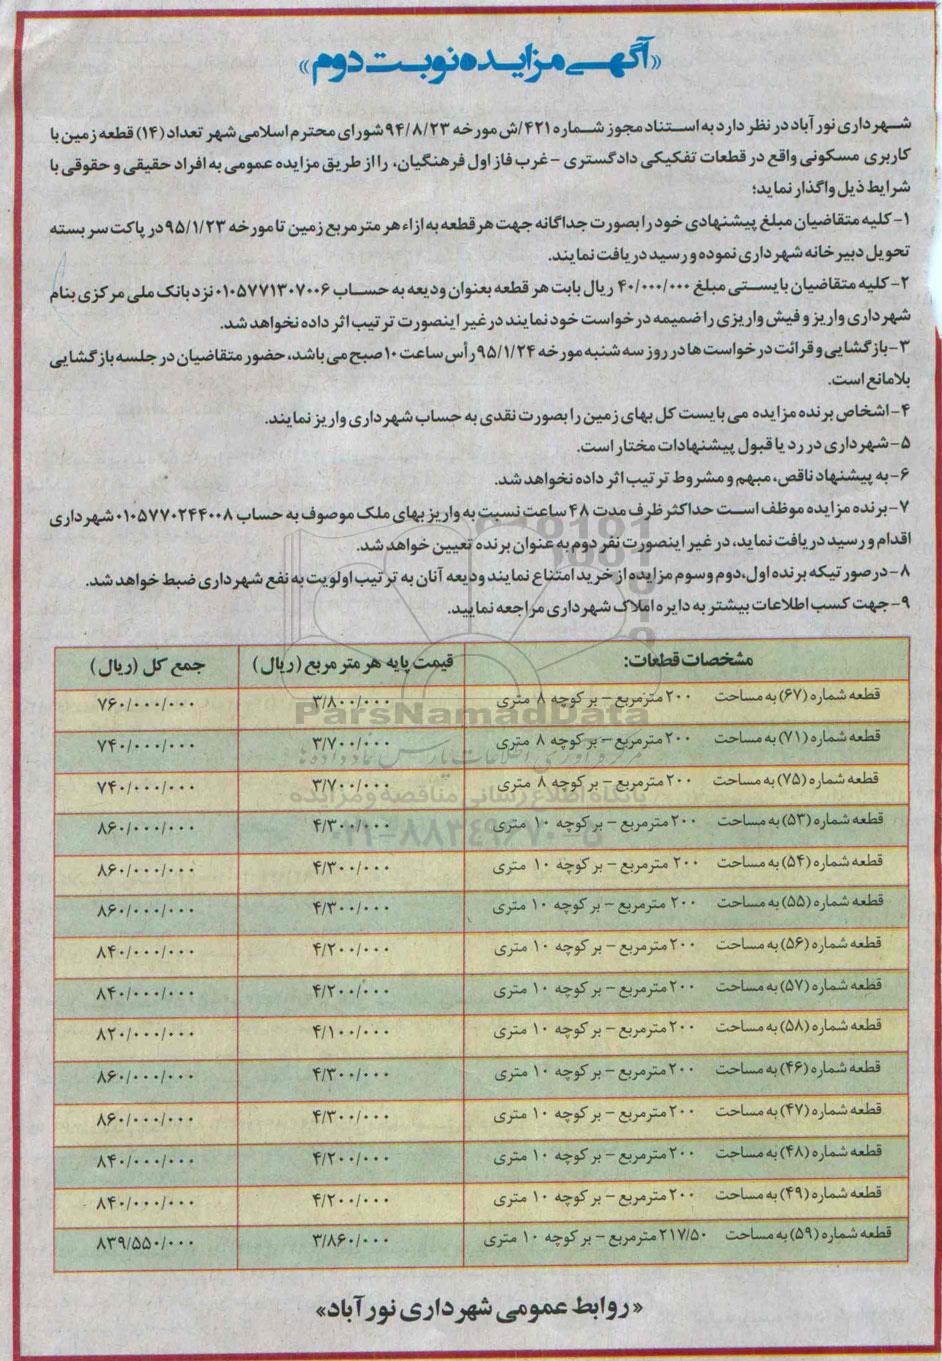 «آگهی مزایده نوبت دوم»
شهرداری نورآباد در نظر دارد به استناد مجوز شماره ۴۲۱/ش مورخه ۹۴/۸/۲۳ شورای محترم اسلامی شهر تعداد (۱۴) قطعه زمین با
کاربری مسکونی واقع در قطعات تفکیکی دادگستری - غرب فاز اول فرهنگیان، را از طریق مزایده عمومی به افراد حقیقی و حقوقی با
شرایط ذیل واگذار نماید؛
۱- کلیه متقاضیان مبلغ پیشنهادی خود را بصورت جداگانه جهت هر قطعه به ازاء هر متر مربع زمین تا مورخه ۹۵/۱/۲۳ در پاکت سر بسته
تحویل دبیرخانه شهرداری نموده و رسید دریافت نمایند.
۲- کلیه متقاضیان بایستی مبلغ ۴۰/۰۰۰/۰۰۰ ریال بابت هر قطعه بعنوان ودیعه به حساب ۰۱۰۵۷۷۱۳۰۷۰۰۶ نزد بانک ملی مرکزی بنام
شهرداری واریز و فیش واریزی را ضمیمه درخواست خود نمایند در غیر اینصورت ترتیب اثر داده نخواهد شد.
۳- بازگشایی و قرائت درخواست ها در روز سه شنبه مورخه ۹۵/۱/۲۴ رأس ساعت ۱۰ صبح می باشد، حضور متقاضیان در جلسه بازگشایی
بلامانع است.
۴- اشخاص برنده مزایده می بایست کل بهای زمین را بصورت نقدی به حساب شهرداری واریز نمایند.
۵- شهرداری در رد یا قبول پیشنهادات مختار است.
۶- به پیشنهاد ناقص، مبهم و مشروط ترتیب اثر داده نخواهد شد.
۷- برنده مزایده موظف است حداکثر ظرف مدت ۴۸ ساعت نسبت به واریز بهای ملک موصوف به حساب ۰۱۰۵۷۷۰۲۴۴۰۰۸ شهرداری
اقدام و رسید دریافت نماید، در غیر اینصورت نفر دوم به عنوان برنده تعیین خواهد شد.
۸- در صورتیکه برنده اول، دوم و سوم مزایده از خرید امتناع نمایند ودیعه آنان به ترتیب اولویت به نفع شهرداری ضبط خواهد شد.
۹- جهت کسب اطلاعات بیشتر به دایره املاک شهرداری مراجعه نمایید.
مشخصات قطعات: قیمت پایه هر متر مربع (ریال) جمع کل (ریال)
قطعه شماره (۶۷) به مساحت ۲۰۰ مترمربع - بر کوچه ۸ متری ۳/۸۰۰/۰۰۰ ۷۶۰/۰۰۰/۰۰۰
قطعه شماره (۷۱) به مساحت ۲۰۰ مترمربع - بر کوچه ۸ متری ۳/۷۰۰/۰۰۰ ۷۴۰/۰۰۰/۰۰۰
قطعه شماره (۷۵) به مساحت ۲۰۰ مترمربع - بر کوچه ۸ متری ۳/۷۰۰/۰۰۰ ۷۴۰/۰۰۰/۰۰۰
قطعه شماره (۵۳) به مساحت ۲۰۰ مترمربع - بر کوچه ۱۰ متری ۴/۳۰۰/۰۰۰ ۸۶۰/۰۰۰/۰۰۰
قطعه شماره (۵۴) به مساحت ۲۰۰ مترمربع - بر کوچه ۱۰ متری ۴/۳۰۰/۰۰۰ ۸۶۰/۰۰۰/۰۰۰
قطعه شماره (۵۵) به مساحت ۲۰۰ مترمربع - بر کوچه ۱۰ متری ۴/۳۰۰/۰۰۰ ۸۶۰/۰۰۰/۰۰۰
قطعه شماره (۵۶) به مساحت ۲۰۰ مترمربع - بر کوچه ۱۰ متری ۴/۲۰۰/۰۰۰ ۸۴۰/۰۰۰/۰۰۰
قطعه شماره (۵۷) به مساحت ۲۰۰ مترمربع - بر کوچه ۱۰ متری ۴/۲۰۰/۰۰۰ ۸۴۰/۰۰۰/۰۰۰
قطعه شماره (۵۸) به مساحت ۲۰۰ مترمربع - بر کوچه ۱۰ متری ۴/۱۰۰/۰۰۰ ۸۲۰/۰۰۰/۰۰۰
قطعه شماره (۴۶) به مساحت ۲۰۰ مترمربع - بر کوچه ۱۰ متری ۴/۳۰۰/۰۰۰ ۸۶۰/۰۰۰/۰۰۰
قطعه شماره (۴۷) به مساحت ۲۰۰ مترمربع - بر کوچه ۱۰ متری ۴/۳۰۰/۰۰۰ ۸۶۰/۰۰۰/۰۰۰
قطعه شماره (۴۸) به مساحت ۲۰۰ مترمربع - بر کوچه ۱۰ متری ۴/۲۰۰/۰۰۰ ۸۴۰/۰۰۰/۰۰۰
قطعه شماره (۴۹) به مساحت ۲۰۰ مترمربع - بر کوچه ۱۰ متری ۴/۲۰۰/۰۰۰ ۸۴۰/۰۰۰/۰۰۰
قطعه شماره (۵۹) به مساحت ۲۱۷/۵۰ مترمربع - بر کوچه ۱۰ متری ۳/۸۶۰/۰۰۰ ۸۳۹/۵۵۰/۰۰۰
«روابط عمومی شهرداری نورآباد»
ParsNamadData
پایگاه اطلاع رسانی مناقصه و مزایده